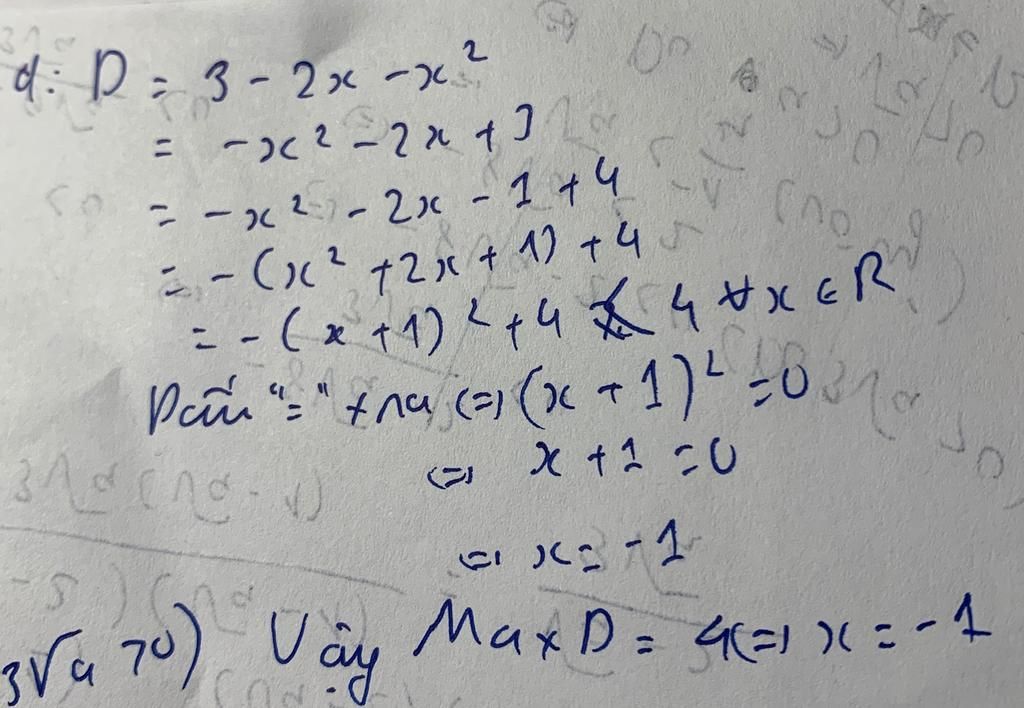 d: D = 3 - 2x - x²
= -x² - 2x + 3
= -x² - 2x - 1 + 4
= -(x² + 2x + 1) + 4
= -(x + 1)² + 4 ≤ 4 ∀x ∈ R
Dấu "=" xra (=) (x + 1)² = 0
(=) x + 1 = 0
(=) x = -1
3√a >0) Vậy Max D = 4 (=) x = -1